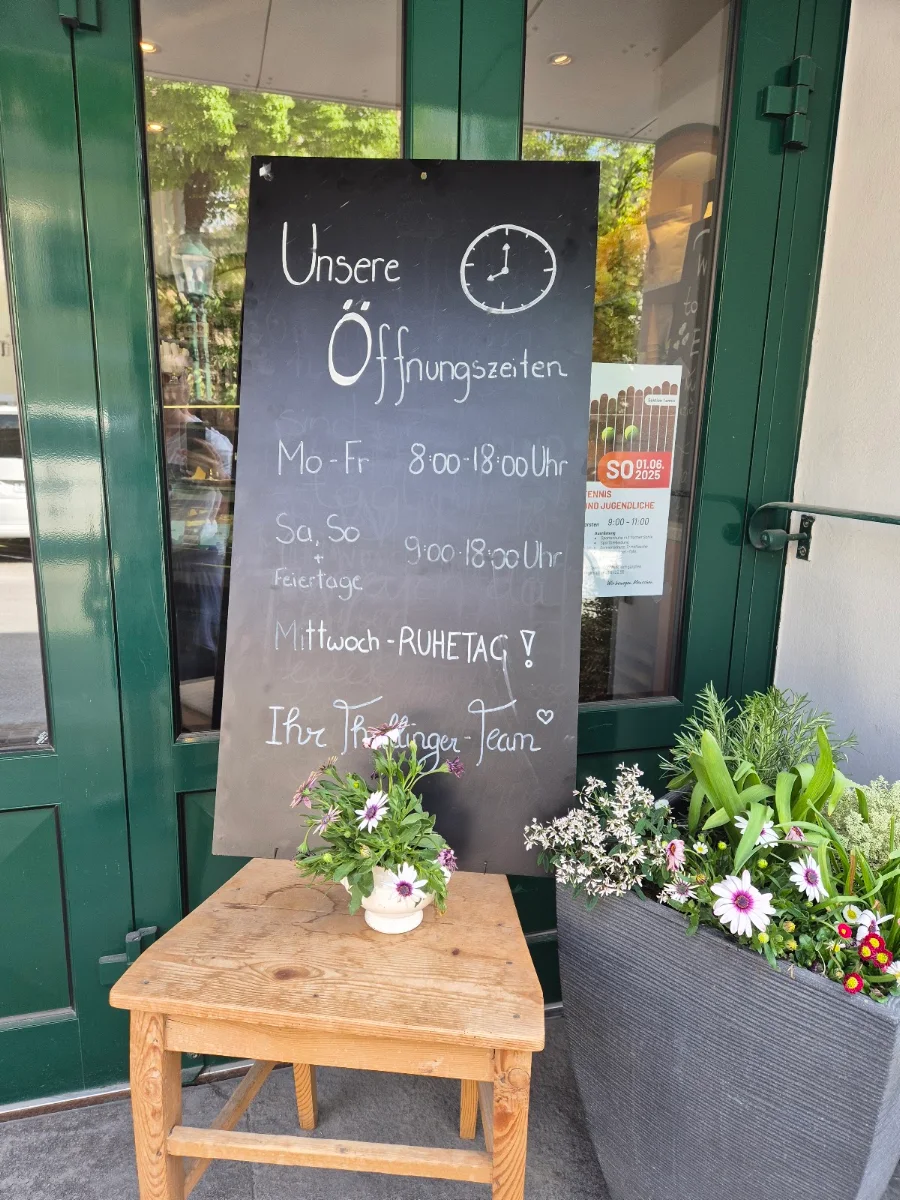 Unsere
Öffnungszeiten
Mo-Fr 8:00-18:00 Uhr
Sa, So
+
Feiertage
9:00-18:00 Uhr
Mittwoch-RUHETAG!
Ihr
-Team
SO 01.06.
2025
TENNIS
UND JUGENDLICHE
9:00 - 11:00